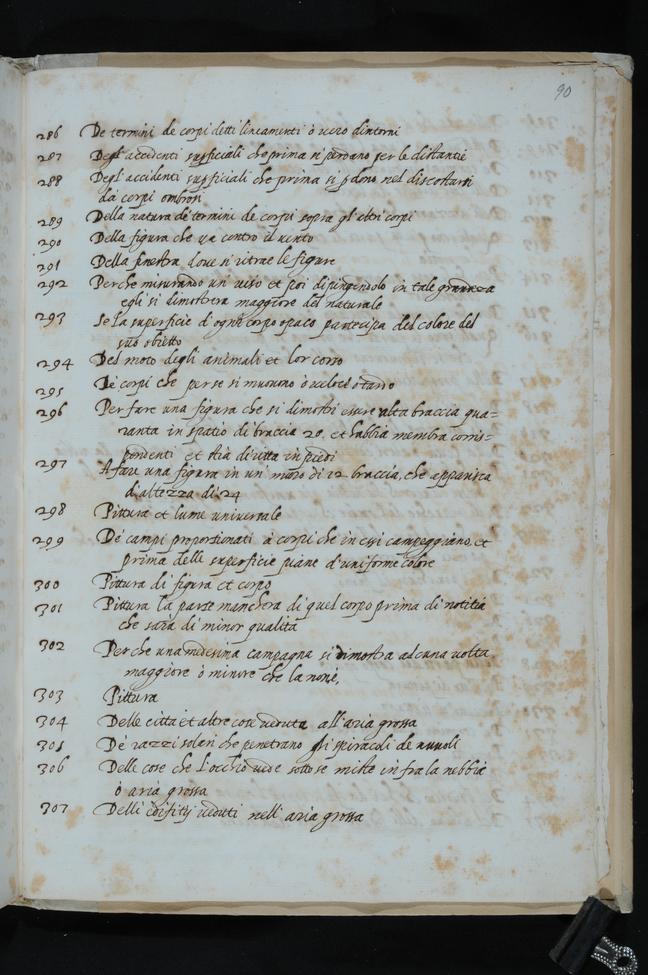 90
286 De termini de corpi detti lineamenti ò vero dintorni
287 Degl'accidenti supficiali che prima si perdano per le distantie
288 Degl'accidenti supficiali che prima si pdono nel discostarsi
da corpi ombrosi
289 Della natura de termini de corpi sopra gl'altri corpi
290 Della figura che va contro il vento
291 Della finestra dove si ritrae le figure
292 Perche misurando un viso et poi dipingendolo in tale grandezza
egli si dimostera maggiore del naturale
293 Se la superficie d'ogni corpo opaco partecipa del colore del
suo obietto
294 Del moto degli animali et lor corso
295 De corpi che per se si muovano ò veloci o tardo
296 Per fare una figura che si dimostri essere alta braccia qua=
ranta in spatio di braccia 20, et habbia membra corris=
pondenti et stia diritta in piedi
297 A fare una figura in un' muro di 12 braccia, che apparisca
d'altezza di 24
298 Pittura et lume universale
299 De campi proportionati à corpi che in essi campeggiano, et
prima delle superficie piane d'uniforme colore
300 Pittura di figura et corpo
301 Pittura la parte manchera di quel corpo prima di notitia
che sarà di minor qualita
302 Perche una medesima campagna si dimostra alcuna volta
maggiore ò minore che la none,
303 Pittura
304 Delle città et altre cose vedute all'aria grossa
305 De razzi solari che penetrano gli spiracoli de nuvoli
306 Delle cose che l'occhio vede sotto se miste in fra la nebbia
ò aria grossa
307 Delli edifitij veduti nell' aria grossa